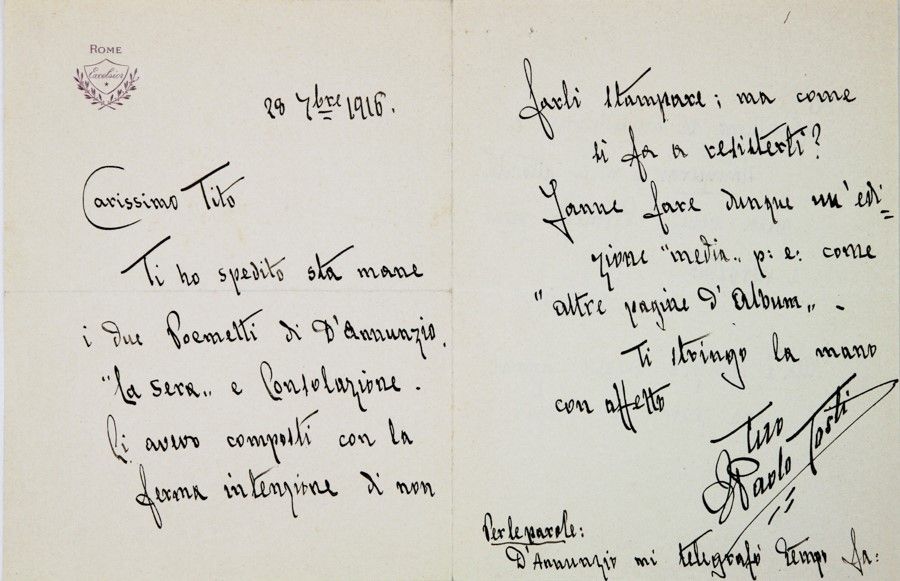 ROME
Excelsior
28 7bre 1916.
Carissimo Tito
Ti ho spedito sta mane
i due Poemetti di D'Annunzio.
"La sera„ e Consolazione.
Li avevo composti con la
ferma intenzione di non
farli stampare; ma come
si fa a resisterti?
Fanne fare dunque un'edi=
zione "media„ p: e: come
"altre pagine d'Album„ -
Ti stringo la mano
con affetto
Tuo
F Paolo Tosti
Per le parole:
D'Annunzio mi telegrafò tempo fa: